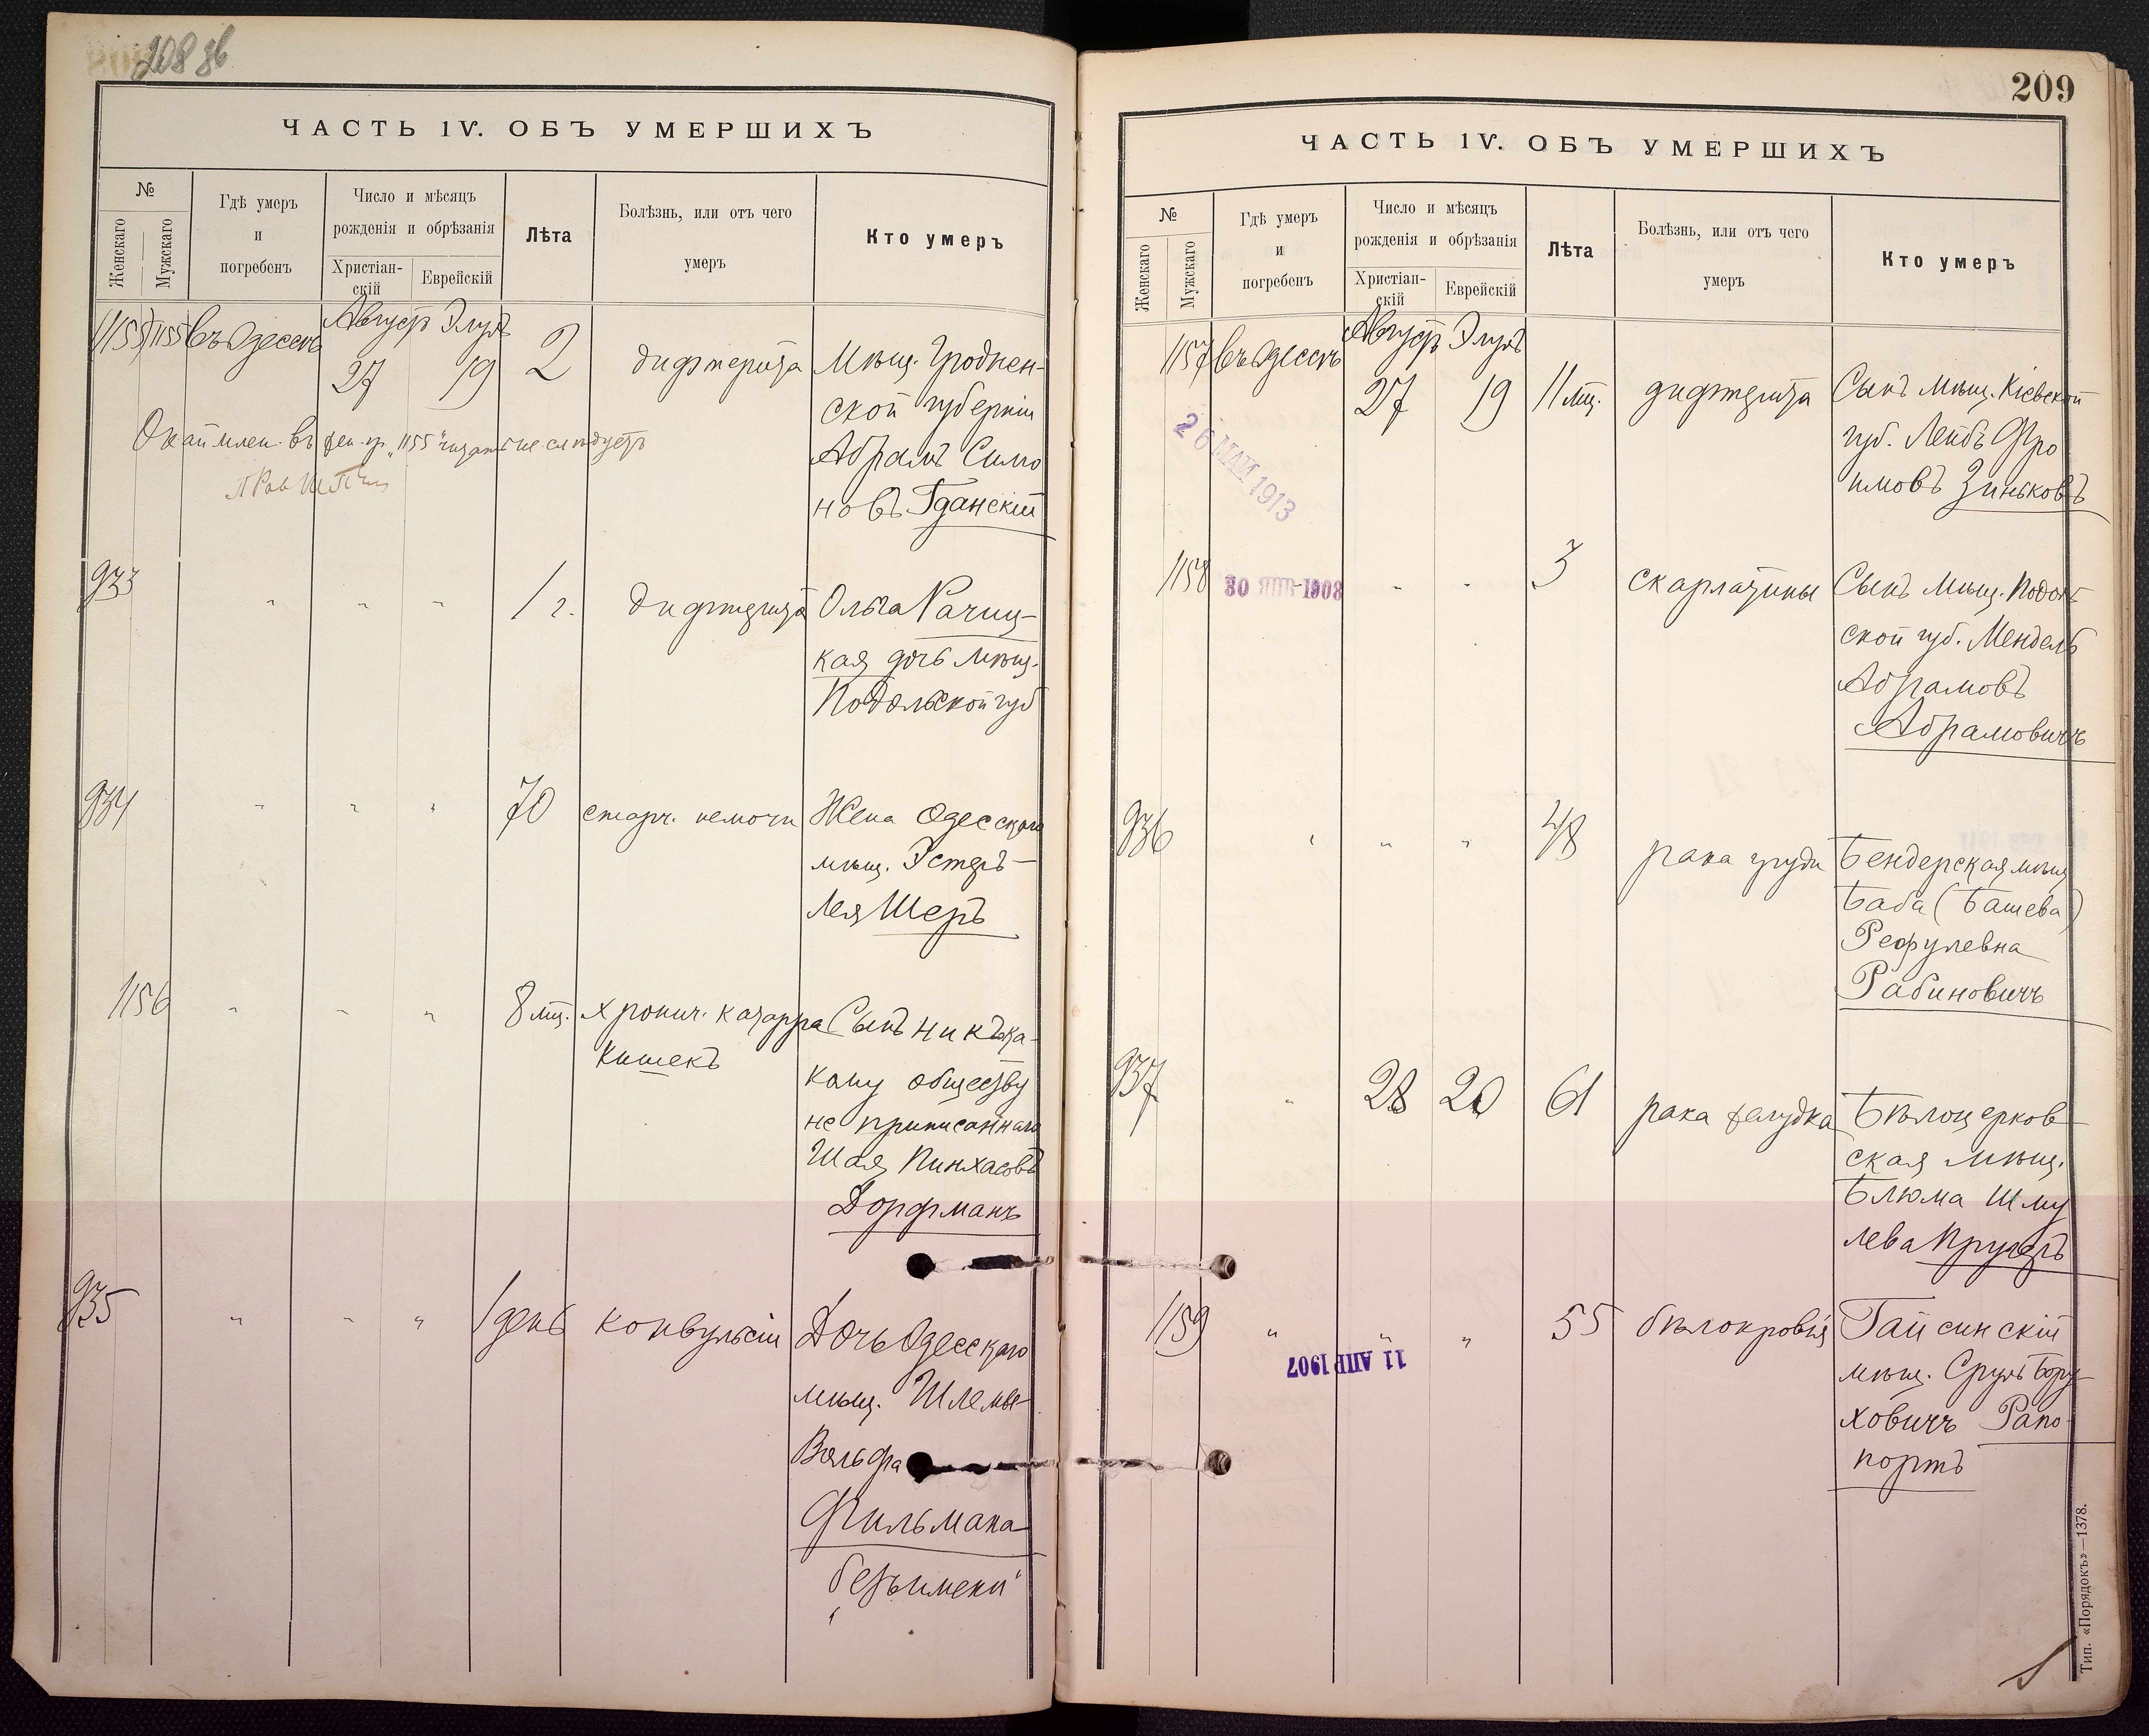 208 об
ЧАСТЬ IV. ОБЪ УМЕРШИХЪ
№
Женскаго
Мужскаго
Гдѣ умеръ
и
погребенъ
Число и мѣсяцъ
рожденія и обрѣзанія
Христіан-
скій
Еврейскій
Лѣта
Болѣзнь, или отъ чего
умеръ
Кто умеръ
1155 1155 въ Одессѣ Август Элулъ 2 дифтерита Мѣщ. Гроднен-
27 19
ской губерніи
Абрамъ Симо
новъ Гданскій
Окаймлен. въ жен. гр. "1155" читать не слѣдуетъ
933 " " " 1 г. дифтерита Ольга Рачиц-
кая дочь мѣщ.
Подольской губ
934 " " " 70 старч. немочи Жена Одесскаго
мѣщ. Эстеръ-
Лея Шеръ
1156 " " " 8 мц. хронич. катарра Сынъ ни къ ка-
кишекъ
кому обществу
не приписаннаго
Шая Пинхасовъ
Дорфманъ
935 " " " 1 день конвульсіи Дочь Одесскаго
мѣщ. Шлемы-
Вольфа
Фильмана
безъ имени
209
ЧАСТЬ IV. ОБЪ УМЕРШИХЪ
№
Женскаго
Мужскаго
Гдѣ умеръ
и
погребенъ
Число и мѣсяцъ
рожденія и обрѣзанія
Христіан-
скій
Еврейскій
Лѣта
Болѣзнь, или отъ чего
умеръ
Кто умеръ
1157 въ Одессѣ Август Элулъ
27 19 11 мц. дифтерита Сынъ мѣщ. Кіевской
губ. Лейбъ Фро
имовъ Зиньковъ
26 МАЙ 1913
1158 30 1908 " " 3 скарлатины Сынъ мѣщ. Подоль
ской губ. Мендель
Абрамовъ
Абрамовичъ
936 " " " 48 рака груди Бендерская мѣщ
Баба (Башева)
Рефулевна
Рабиновичъ
937 " 28 20 61 рака желудка Бѣлоцерков-
ская мѣщ.
Блюма Шму
лева Кругеръ
1159 " " " 55 бѣлокровія Гайсинскій
11 АПР 1907
мѣщ. Сруль Бору-
ховичъ Рапо-
портъ
Тип. «Порядокъ»—1378.